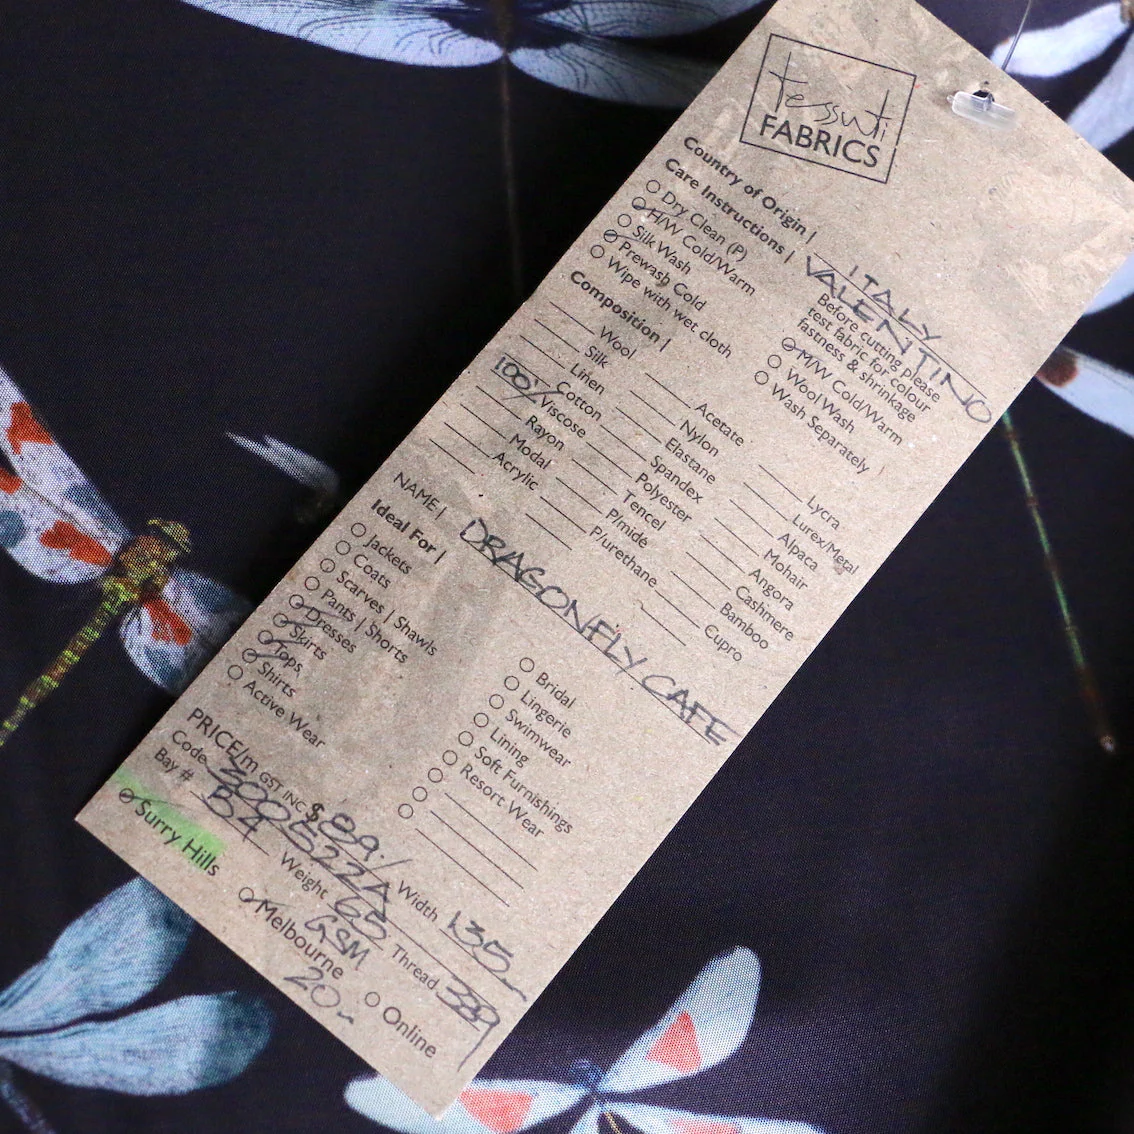 tessuti
FABRICS
Country of Origin | ITALY
Care Instructions | VALENTINO
Dry Clean (P)
H/W Cold/Warm
Silk Wash
Prewash Cold
Wipe with wet cloth
Before cutting please
test fabric for colour
fastness & shrinkage
M/W Cold/Warm
Wool Wash
Wash Separately
Composition |
Wool
Silk
Linen
Cotton
100% Viscose
Rayon
Modal
Acrylic
Acetate
Nylon
Elastane
Spandex
Polyester
Tencel
P/mide
P/urethane
Lycra
Lurex/Metal
Alpaca
Mohair
Angora
Cashmere
Bamboo
Cupro
NAME | DRAGONFLY CAFE
Ideal For |
Jackets
Coats
Scarves | Shawls
Pants | Shorts
Dresses
Skirts
Tops
Shirts
Active Wear
Bridal
Lingerie
Swimwear
Lining
Soft Furnishings
Resort Wear
PRICE/m GST INC $89./
Code 300522A Width 135
Bay # B4 Weight 65 GSM Thread
Surry Hills Melbourne Online
20